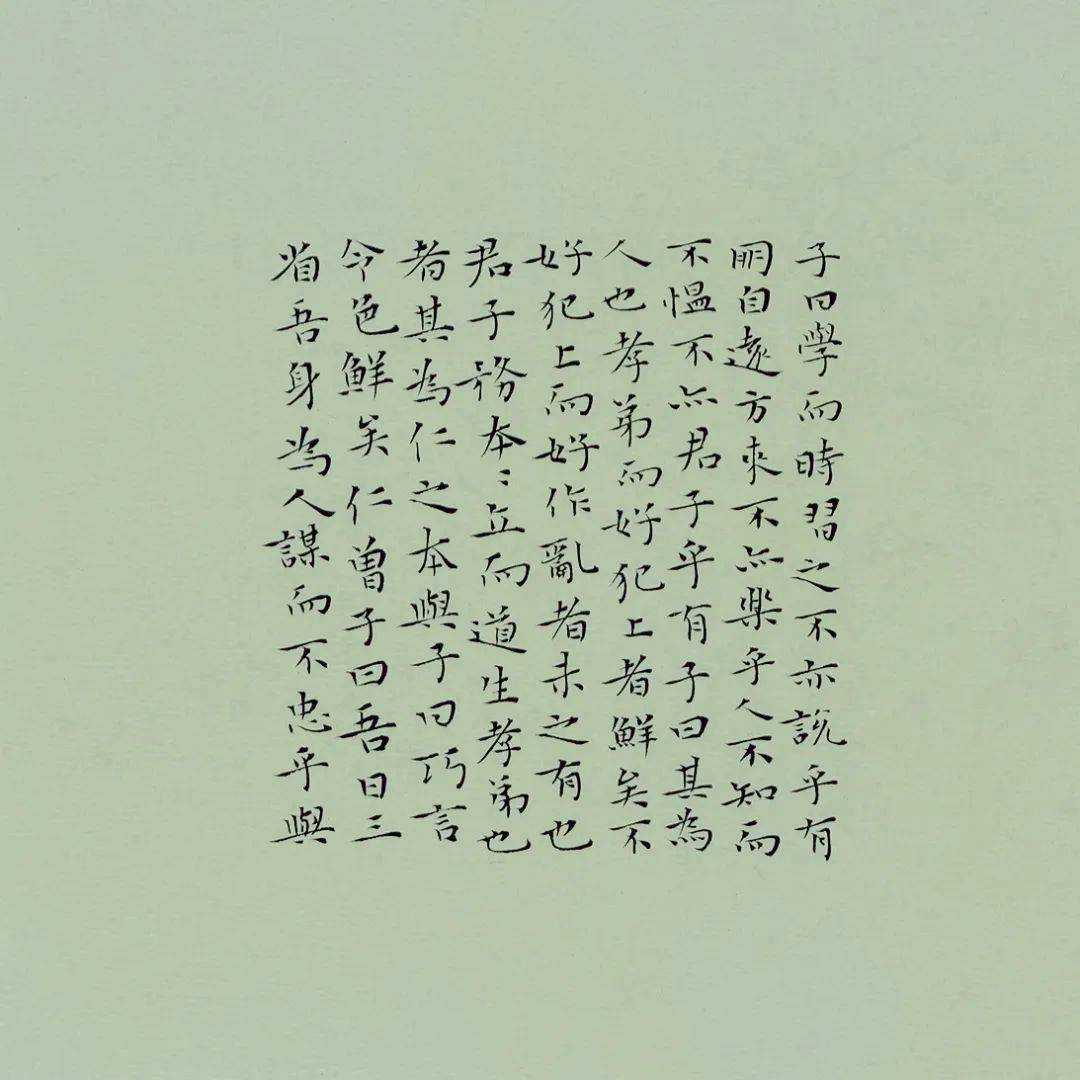 子曰學而時習之不亦說乎有
朋自遠方來不亦樂乎人不知而
不慍不亦君子乎有子曰其為
人也孝弟而好犯上者鮮矣不
好犯上而好作亂者未之有也
君子務本〻立而道生孝弟也
者其為仁之本與子曰巧言
令色鮮矣仁曾子曰吾日三
省吾身為人謀而不忠乎與